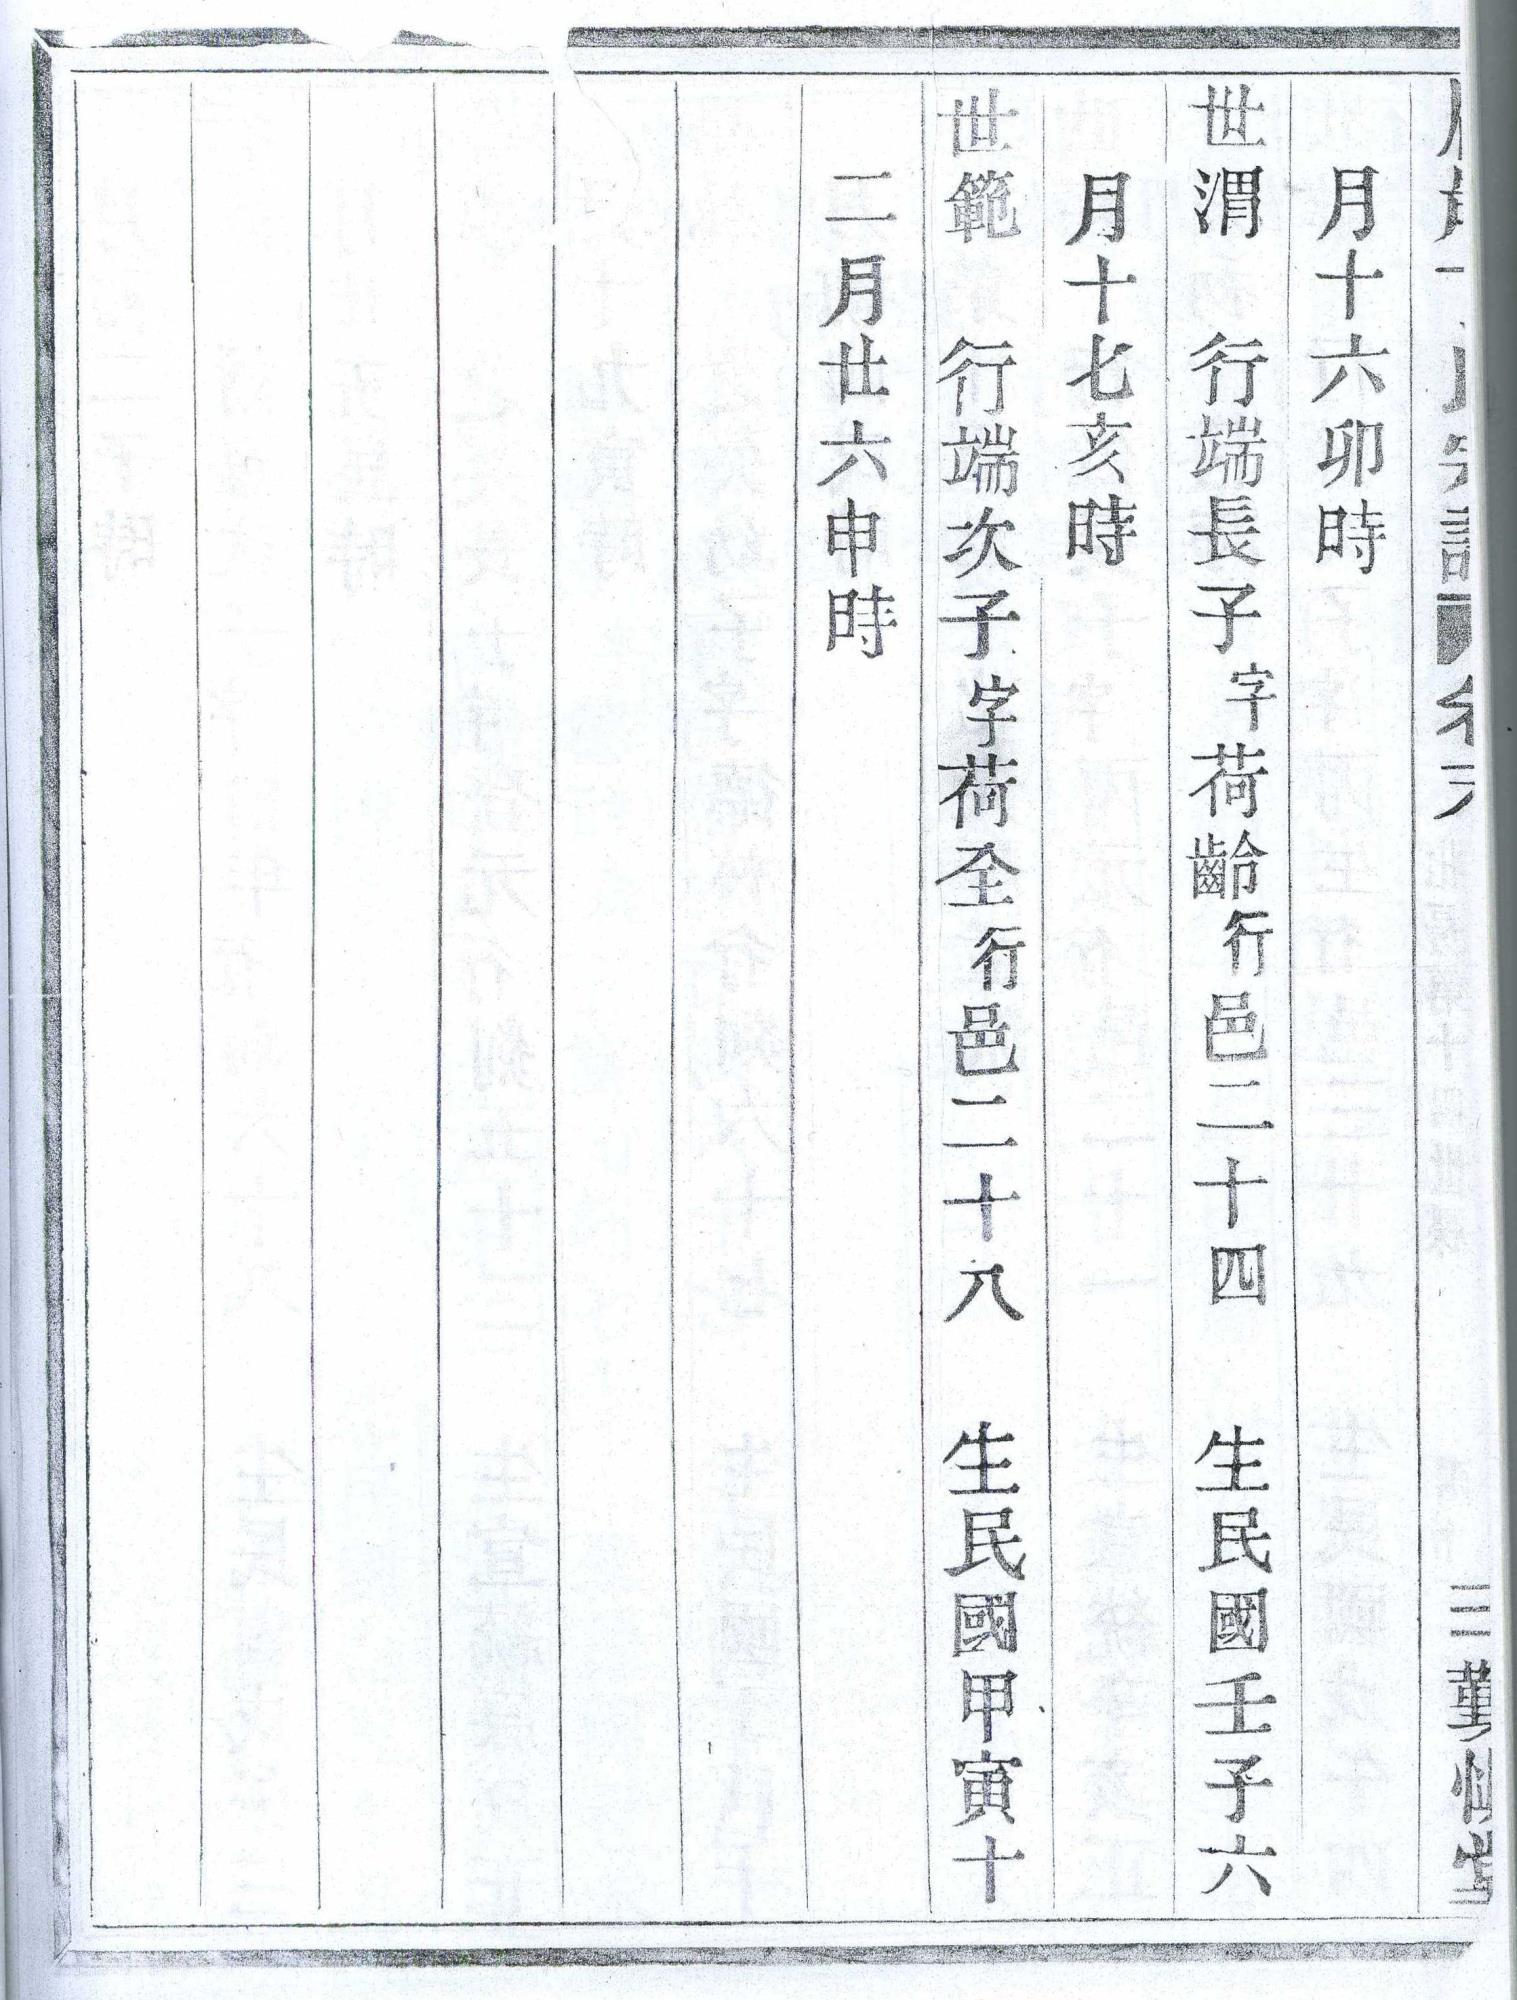 月十六卯時
世渭　行端長子字荷齡行邑二十四　生民國壬子六
月十七亥時
世範　行端次子字荷全行邑二十八　生民國甲寅十
二月廿六申時